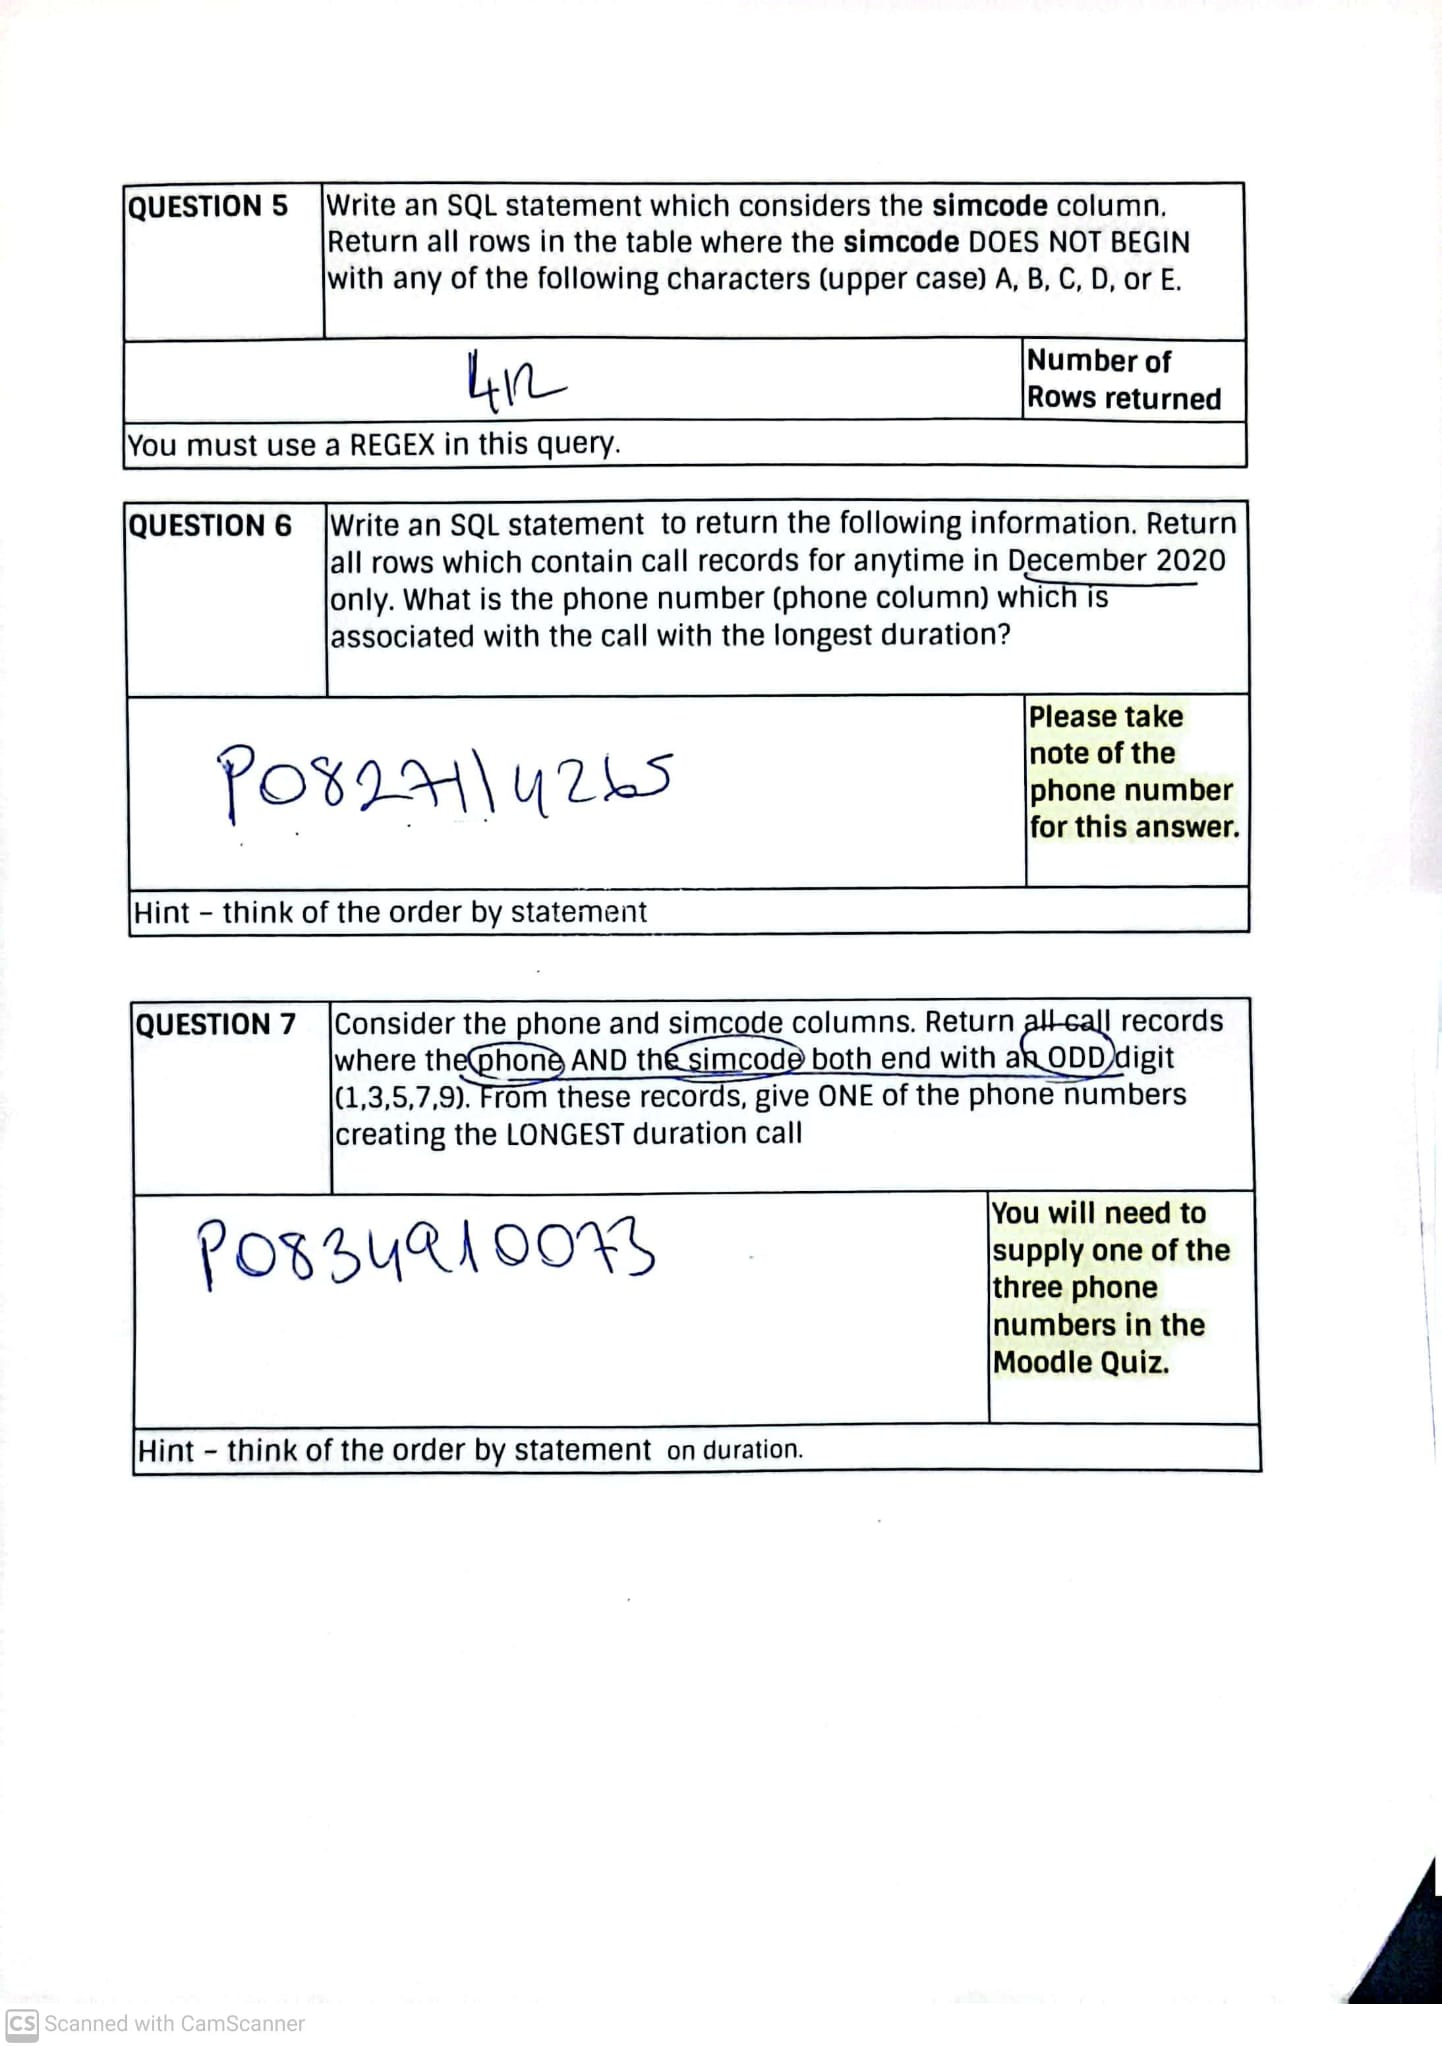 QUESTION 5
Write an SQL statement which considers the simcode column.
Return all rows in the table where the simcode DOES NOT BEGIN
with any of the following characters (upper case) A, B, C, D, or E.
412
Number of
Rows returned
You must use a REGEX in this query.
QUESTION 6
Write an SQL statement to return the following information. Return
all rows which contain call records for anytime in December 2020
only. What is the phone number (phone column) which is
associated with the call with the longest duration?
P0827114265
Please take
note of the
phone number
for this answer.
Hint – think of the order by statement
QUESTION 7
Consider the phone and simcode columns. Return all call records
where the phone AND the simcode both end with an ODD digit
(1,3,5,7,9). From these records, give ONE of the phone numbers
creating the LONGEST duration call
P0834910073
You will need to
supply one of the
three phone
numbers in the
Moodle Quiz.
Hint – think of the order by statement on duration.
CS Scanned with CamScanner